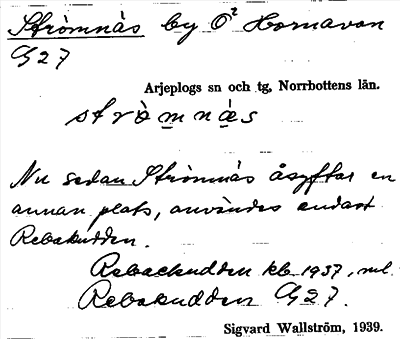 Strömnäs by Ö² Hornavan
G27
Arjeplogs sn och tg, Norrbottens län.
strò̀mnà̀s
Nu sedan Strömnäs åsyftar en
annan plats, användes endast
Rebakudden.
Rebackudden kb 1937, ml.
Rebakudden G27.
Sigvard Wallström, 1939.